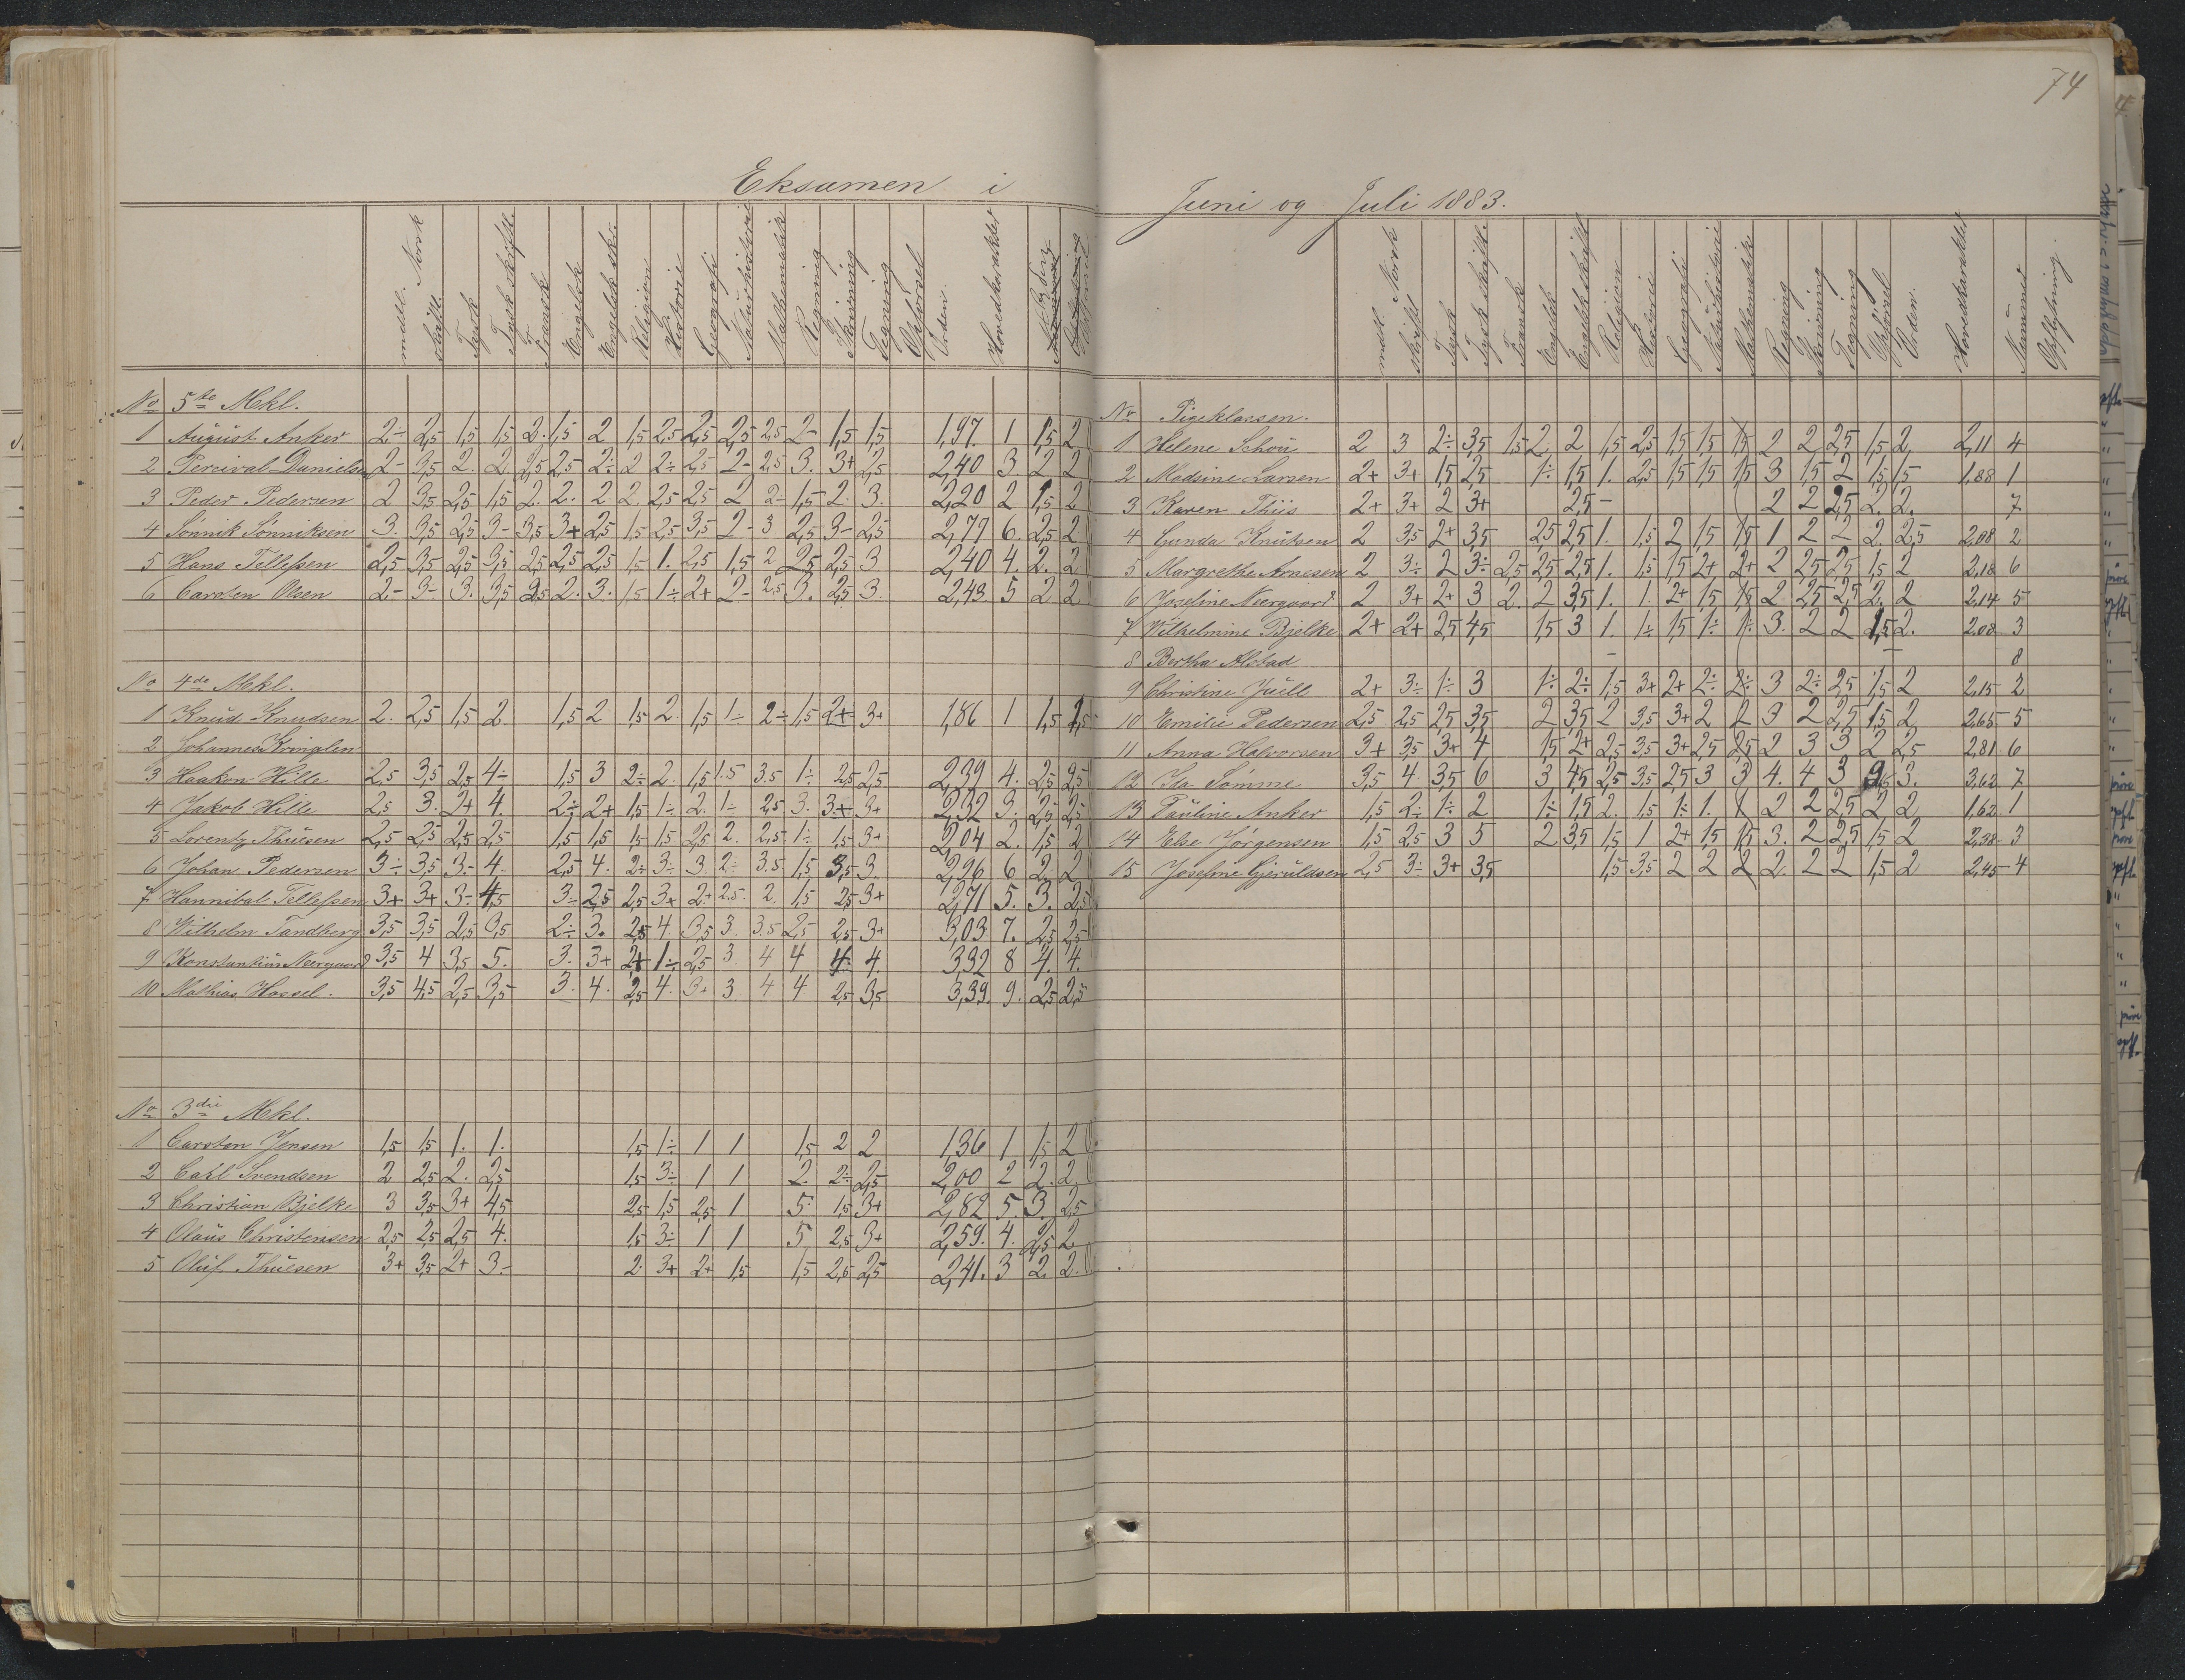 74
Eksamen i Juni og Juli 1883.
mundl. Norsk
skriftl.
Tysk
Tysk skriftl.
Fransk
Engelsk
Engelsk skr.
Religion
Historie
Geografi
Naturhistorie
Mathematik
Regning
Skrivning
Tegning
Opførsel
Orden.
Hovedkarakter
No 5te Mkl.
1 August Anker 2÷ 2,5 1,5 1,5 2. 1,5 2 1,5 2,5 2,5 2,5 2,5 2- 1,5 1,5 1,97 1 1,5 2
2 Percival Danielsen 2- 3,5 2. 2. 2,5 2,5 2÷ 2 2÷ 2,5 2- 2,5 3. 3+ 2,5 2,40 3 2 2
3 Peder Pedersen 2 3,5 2,5 1,5 2. 2. 2 2. 2,5 2,5 2 2- 1,5 2. 3. 2,20 2 1,5 2
4 Sønnik Sønniksen 3. 3,5 2,5 3- 3,5 3+ 2,5 1,5 2,5 3,5 2- 3 2,5 3- 2,5 2,77 6. 2,5 2
5 Hans Tellefsen 2,5 3,5 2,5 3,5 2,5 2,5 2,5 1,5 1. 2,5 1,5 2 2,5 2,5 3 2,40 4. 2. 2
6 Carsten Olsen 2- 3- 3. 3,5 2,5 2. 3. 1,5 1÷ 2+ 2- 2,5 3. 2,5 3. 2,43. 5 2 2
No 4de Mkl.
1 Knud Knudsen 2. 2,5 1,5 2. 1,5 2 1,5 2. 1,5 1÷ 2÷ 1,5 2+ 3+ 1,86 1 1,5 1,5
2 Johannes Kringlen
3 Haakon Hille 2,5 3,5 2,5 4÷ 1,5 3 2÷ 2. 1,5 1.5 3.5 1÷ 2,5 2,5 2,39 4. 2,5 2,5
4 Jakob Hille 2,5 3. 2+ 4. 2÷ 2+ 1,5 1÷ 2. 1÷ 2,5 3. 3+ 3+ 2,32 3. 2,5 2,5
5 Lorentz Thuesen 2,5 2,5 2,5 2,5 1,5 1,5 1,5 1,5 2,5 2. 2,5 1÷ 1,5 3+ 2,04 2. 1,5 2
6 Johan Pedersen 3÷ 3,5 3- 4. 2,5 4. 2÷ 3÷ 3. 2÷ 3.5 1,5 3,5 3. 2,96 6 2. 2
7 Hannibal Tellefsen 3+ 3+ 3- 4,5 3÷ 2,5 2,5 3+ 2+ 2.5. 2. 1,5 2,5 3+ 2,71 5. 3. 2,5
8 Wilhelm Tandberg 3,5 3,5 2,5 3,5 2÷ 3. 2,5 4. 3,5 3. 3.5 2,5 2,5 3+ 3,03 7. 2,5 2,5
9 Konstantin Neergaard 3,5 4 3,5 5. 3. 3+ 2+ 1÷ 2,5 3. 4 4 4 4. 3,32 8 4. 4.
10 Mathias Hassel. 3,5 4,5 2,5 3,5 3. 4. 2,5 4. 3+ 3. 4 4 2,5 3,5 3,39. 9. 2,5 2,5
No 3die Mkl.
1 Carsten Jensen 1,5 1,5 1. 1. 1,5 1÷ 1 1 1,5 2 2 1,36 1 1,5 2
2 Carl Svendsen 2 2,5 2. 2,5 1,5 3÷ 1 1 2. 2÷ 2,5 2,00 2 2. 2.
3 Christian Bjelke 3 3,5 3+ 4,5 2,5 1,5 2,5 1 5 1,5 3+ 2,82 5 3. 2,5
4 Olaus Christensen 2,5 2,5 2,5 4. 1,5 3÷ 1 1 5 2,5 3+ 2,59. 4. 2,5 2
5 Oluf Thuesen 3+ 3,5 2+ 3- 2. 3+ 2+ 1,5 1,5 2,5 2,5 2,41. 3 2. 2.
mdl Norsk
skriftl
Tysk
Tysk skriftl.
Fransk
Engelsk
Engelsk skriftl
Religion
Historie
Geografi
Naturhistorie
Mathematik
Regning
Skrivning
Tegning
Opførsel
Orden.
Hovedkarakter
Nummer
Opflytning.
No Pigeklassen.
1 Helene Schou 2 3 2÷ 3,5 1,5 2. 2 1,5 2,5 1,5 1,5 1,5 2 2 2,5 1,5 2 2,11 4
2 Madsine Larsen 2+ 3+ 1,5 2,5 1÷ 1,5 1. 2,5 1,5 1,5 1,5 3 1,5 2 1,5 1,5 1,88 1
3 Karen Thiis 2+ 3+ 2 3+ 2,5 - 2 2 2,5 2. 2. 7
4 Gunda Knutsen 2 3,5 2+ 3,5 2,5 2,5 1. 1,5 2 1,5 1,5 1 2 2 2. 2,5 2,08 2
5 Margrethe Arnesen 2 3÷ 2 3÷ 2,5 2,5 2,5 1. 1,5 1,5 2+ 2+ 2 2,5 2,5 1,5 2 2,18 6
6 Josefine Neergaard 2 3+ 2+ 3 2. 2 3,5 1. 1. 2+ 1,5 1,5 2 2,5 2,5 2. 2 2,14 5
7 Wilhelmine Bjelke 2+ 2+ 2,5 4,5 1,5 3 1. 1÷ 1,5 1÷ 1÷ 3. 2 2 1,5 2. 2.08 3
8 Bertha Alstad - - 8
9 Christine Juell 2+ 3÷ 1÷ 3 1÷ 2÷ 1,5 3+ 2+ 2÷ 2÷ 3 2÷ 2,5 1,5 2 2,15 2
10 Emilie Pedersen 2,5 2,5 2,5 3,5 2 3,5 2 3,5 3+ 2 2 3 2 2,5 1,5 2 2,65 5
11 Anna Halvorsen 3+ 3,5 3+ 4 1,5 2+ 2,5 3,5 3+ 2,5 2,5 2 3 3 2 2,5 2,81 6
12 Ida Sømme 3,5 4. 3,5 6 3 4,5 2,5 3,5 2,5 3 3 4. 4 3 3. 3,62 7
13 Pauline Anker 1,5 2÷ 1÷ 2 1÷ 1,5 2. 1,5 1÷ 1. 1 2 2 2,5 2 2 1,62 1
14 Else Jørgensen 1,5 2,5 3 5 2 3,5 1,5 1 2+ 1,5 1,5 3. 2 2,5 1,5 2 2,38 3
15 Josefine Gjeruldsen 2,5 3÷ 3+ 3,5 1,5 3,5 2 2 2 2. 2 2 1,5 2 2,45 4